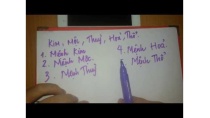 Kim, Mộc, Thuỷ, Hoả, Thổ
1. Mệnh Kim
2. Mệnh Mộc
3 Mệnh Thuỷ
4. Mệnh Hoả
Mệnh Thổ